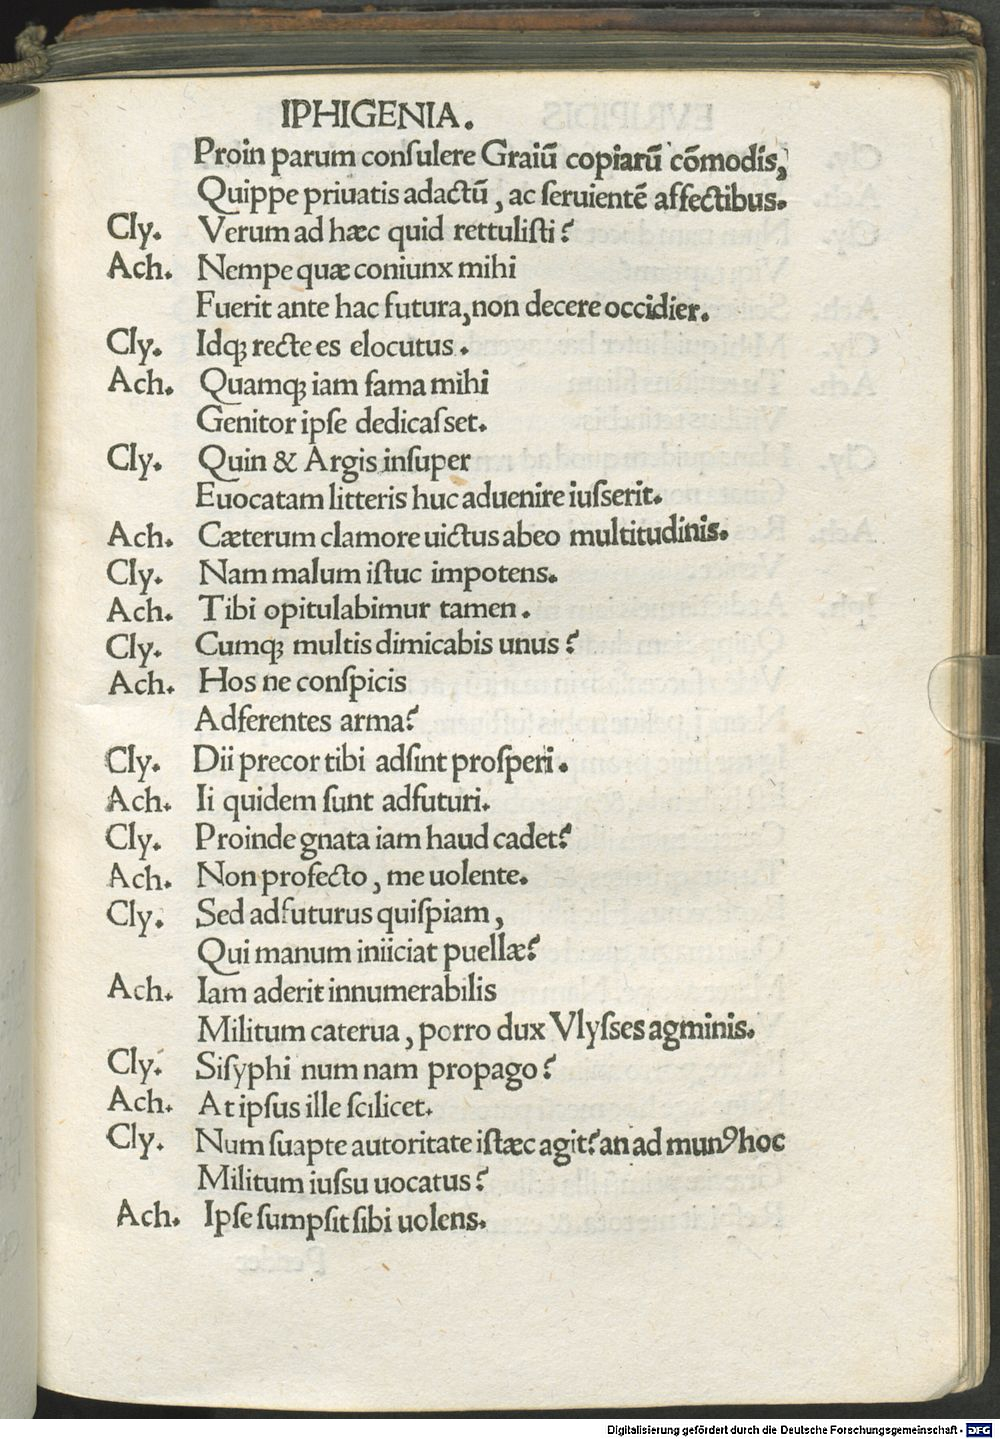 IPHIGENIA.
Proin parum conſulere Graiũ copiarũ cõmodis,
Quippe priuatis adactũ, ac ſeruientẽ affectibus.
Cly. Verum ad hæc quid rettuliſti?
Ach. Nempe quæ coniunx mihi
Fuerit ante hac futura, non decere occidier.
Cly. Idq; recte es elocutus.
Ach. Quamq; iam fama mihi
Genitor ipſe dedicaſset.
Cly. Quin & Argis inſuper
Euocatam litteris huc aduenire iuſserit.
Ach. Cæterum clamore uictus abeo multitudinis.
Cly. Nam malum iſtuc impotens.
Ach. Tibi opitulabimur tamen.
Cly. Cumq; multis dimicabis unus?
Ach. Hos ne conſpicis
Adferentes arma?
Cly. Dii precor tibi adſint proſperi.
Ach. Ii quidem ſunt adfuturi.
Cly. Proinde gnata iam haud cadet?
Ach. Non profecto, me uolente.
Cly. Sed adfuturus quiſpiam,
Qui manum iniiciat puellæ?
Ach. Iam aderit innumerabilis
Militum caterua, porro dux Vlyſses agminis.
Cly. Siſyphi num nam propago?
Ach. At ipſus ille ſcilicet.
Cly. Num ſuapte autoritate iſtæc agit? an ad munꝰ hoc
Militum iuſsu uocatus?
Ach. Ipſe ſumpſit ſibi uolens.
Digitalisierung gefördert durch die Deutsche Forschungsgemeinschaft - DFG